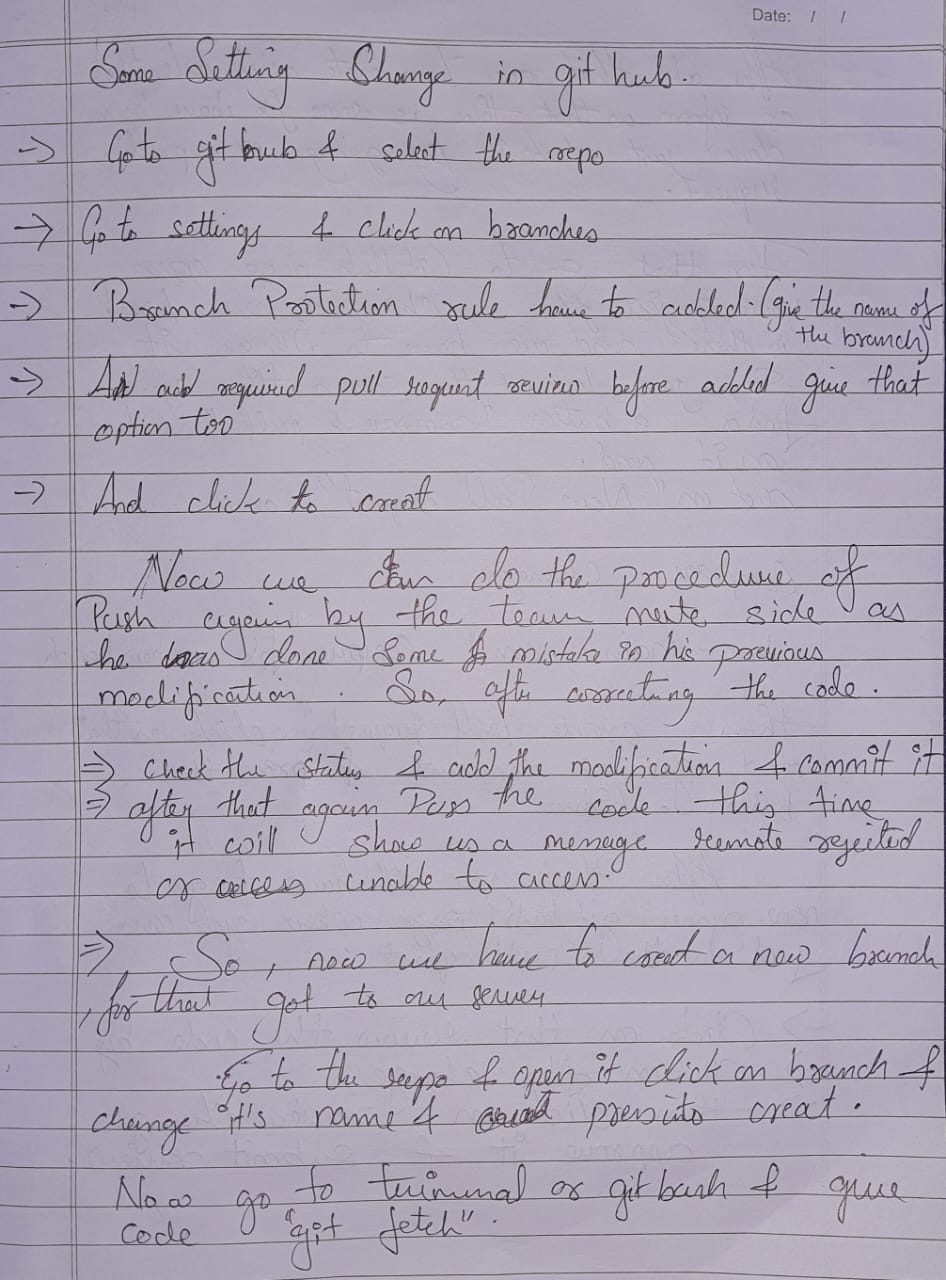 Date: / /
Some Setting Change in git hub.
→ Go to git bub & select the repo
→ Go to settings & click on branches
→ Branch Protection rule have to added. (give the name of
the branch)
→ Add add required pull request review before added give that
option too
→ And click to creat
Now we can do the procedure of
Push again by the team mate side as
he was done some mistake in his previous
modification. So, after correcting the code.
⇒ Check the status & add the modification & commit it
⇒ after that again Puss the code this time
it will show us a message remote rejected
or access unable to access.
⇒, So, now we have to creat a new branch
, for that got to our server
Go to the repo & open it click on branch &
change it's name & press into creat.
Now go to terminal or git bash & give
code "git fetch".